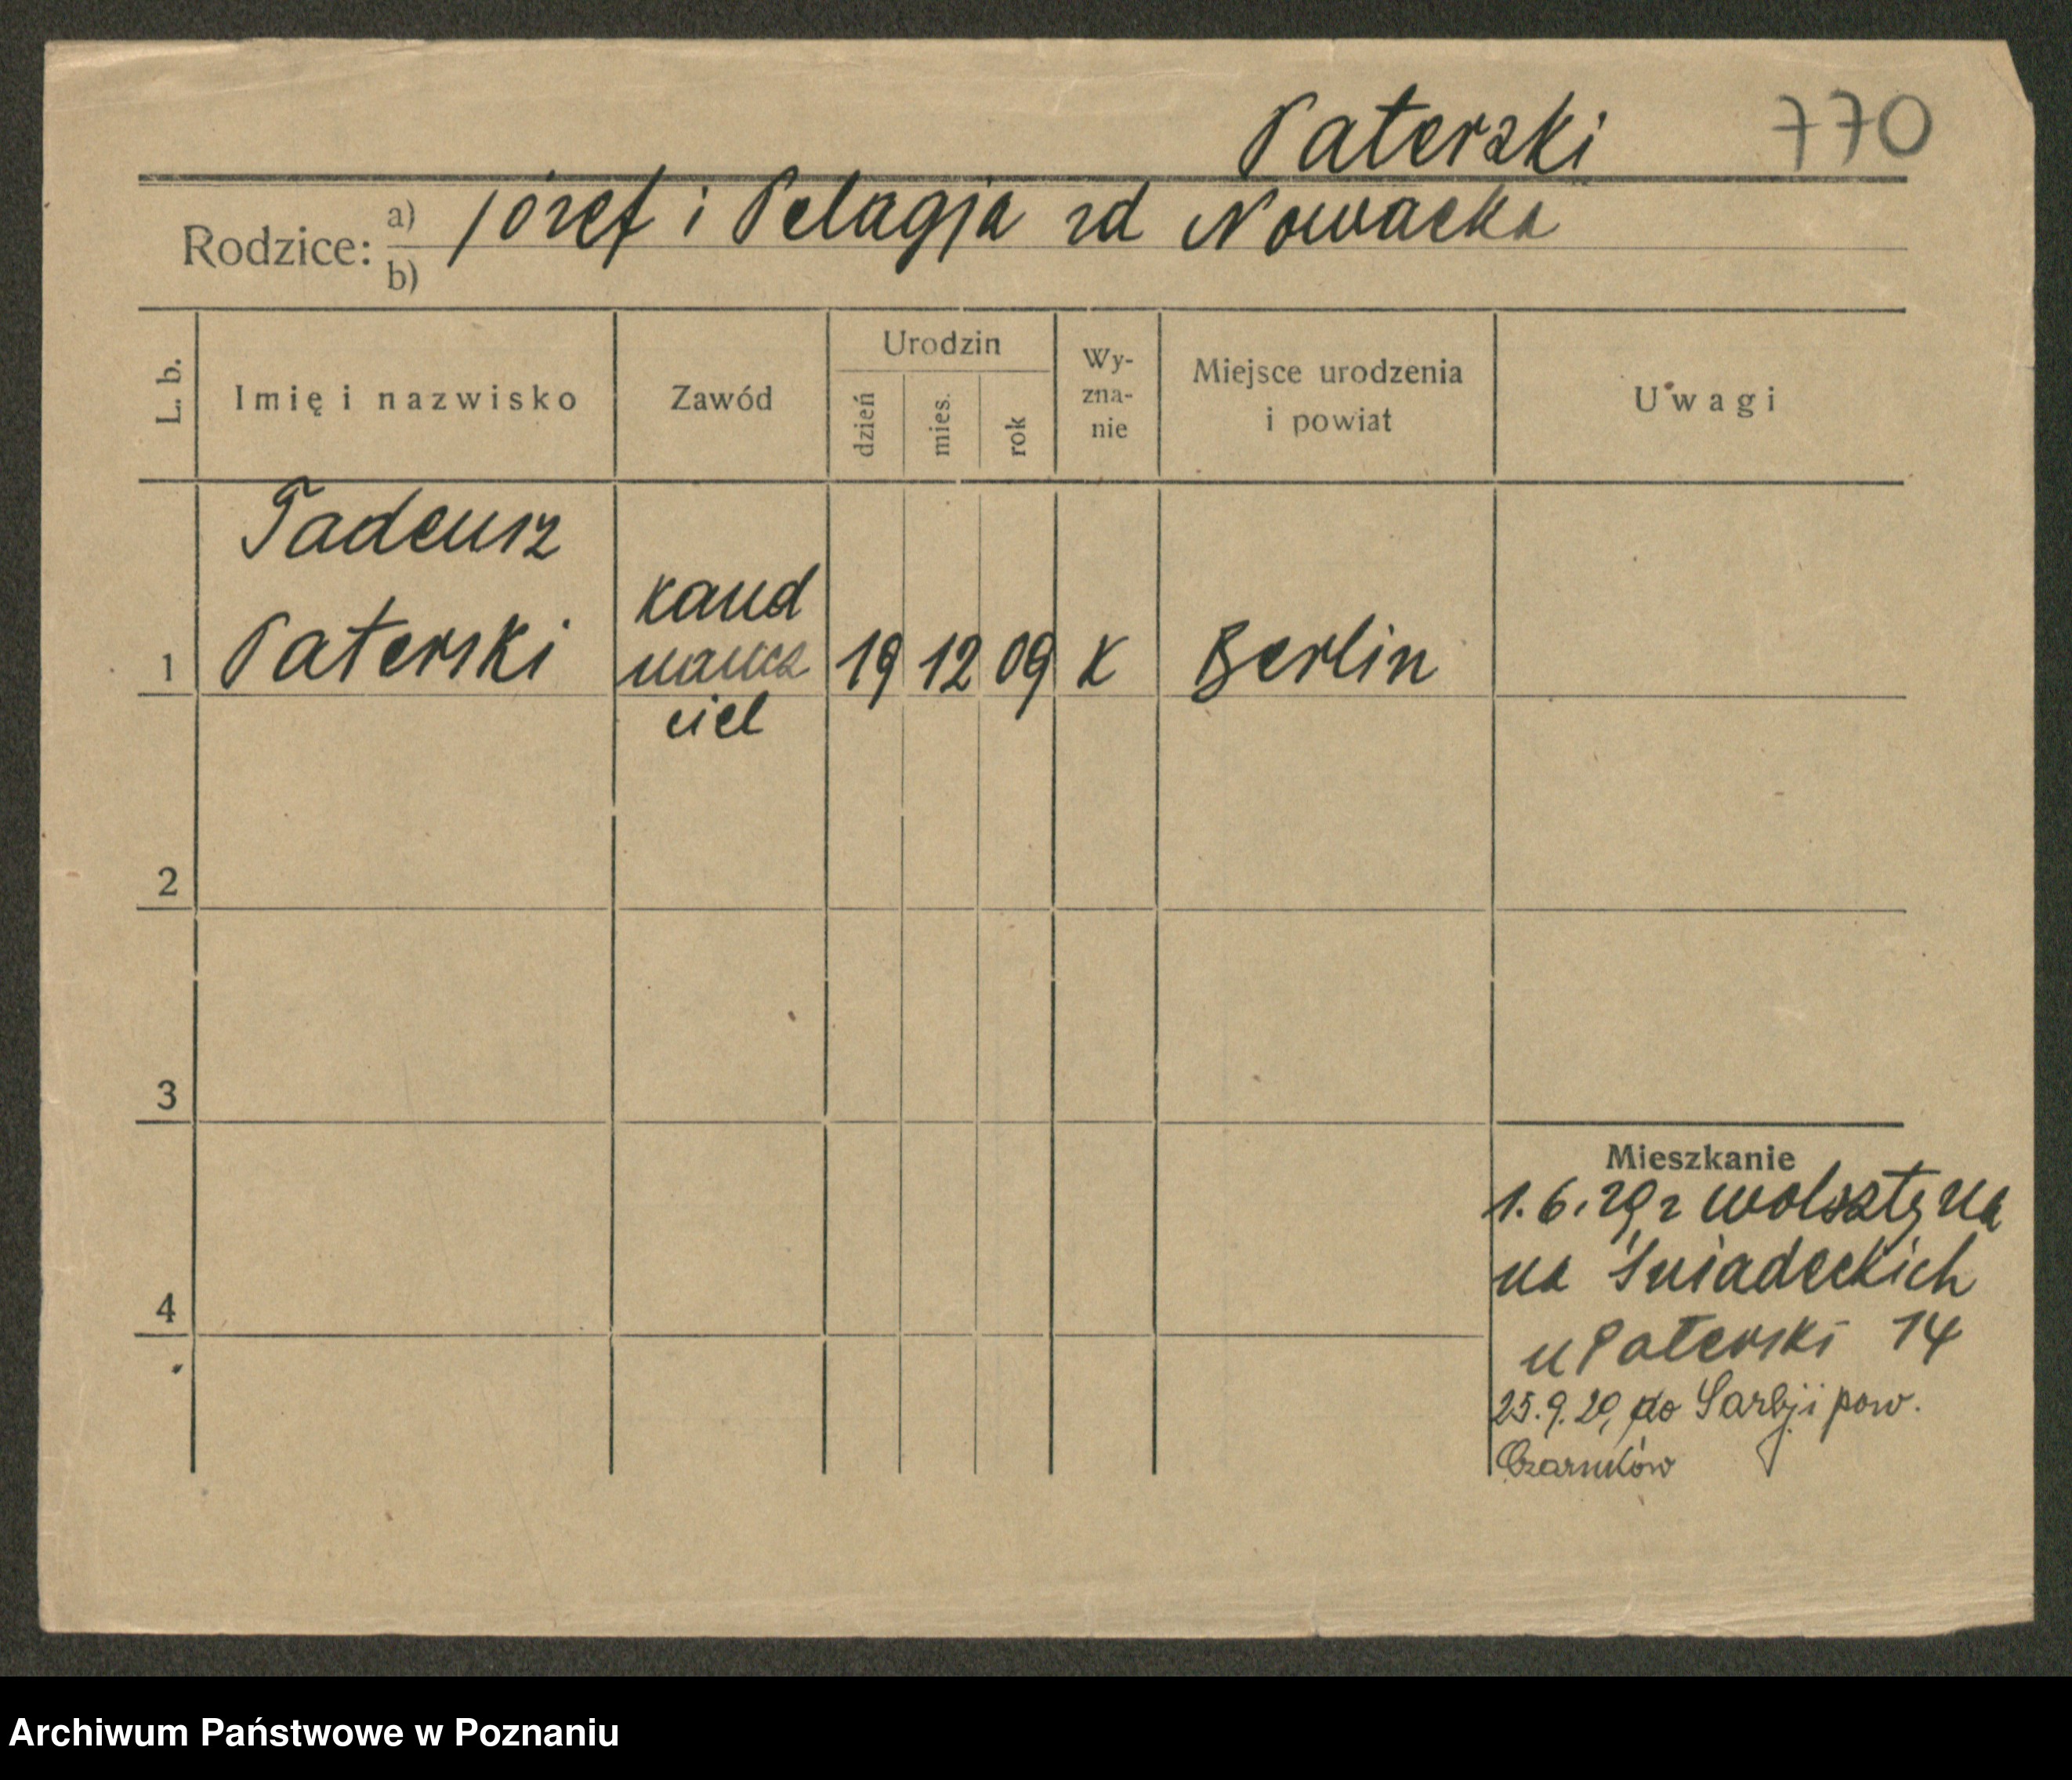 Paterski 770
Rodzice: a) Józef i Pelagja zd Nowacka
b)
L. b.
Imię i nazwisko
Zawód
Urodzin
dzień
mies.
rok
Wy-
zna-
nie
Miejsce urodzenia
i powiat
Uwagi
Tadeusz
Paterski
kand
naucz
ciel
1
19 12 09 K Berlin
2
3
4
Mieszkanie
1.6.29 z Wolsztyna
na Śniadeckich
u Paterski 14
25.9.29, do Sarbji pow.
Czarnków
Archiwum Państwowe w Poznaniu